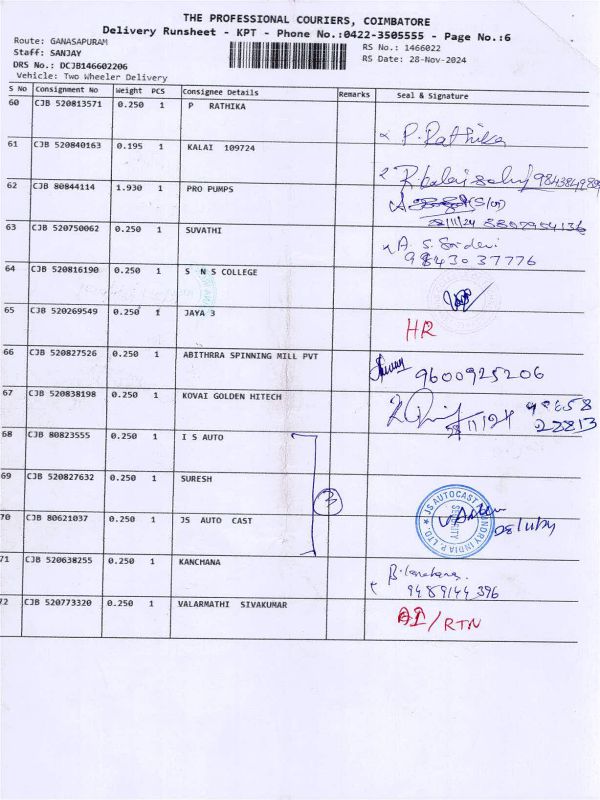 THE PROFESSIONAL COURIERS, COIMBATORE
Delivery Runsheet - KPT - Phone No.:0422-3505555 - Page No.:6
Route: GANASAPURAM
RS No.: 1466022
Staff: SANJAY
RS Date: 28-Nov-2024
DRS No.: DCJB146602206
Vehicle: Two Wheeler Delivery
S No Consignment No Weight PCS Consignee Details Remarks Seal & Signature
60 CJB 520813571 0.250 1 P RATHIKA
P. Rathika
61 CJB 520840163 0.195 1 KALAI 109724
9843849898
62 CJB 80844114 1.930 1 PRO PUMPS
28/11/24 8807904136
63 CJB 520750062 0.250 1 SUVATHI
A. S. Sridevi
9843037776
64 CJB 520816190 0.250 1 S N S COLLEGE
65 CJB 520269549 0.250 1 JAYA 3
HR
66 CJB 520827526 0.250 1 ABITHRRA SPINNING MILL PVT
9600925206
67 CJB 520838198 0.250 1 KOVAI GOLDEN HITECH
28/11/24 98658
22813
68 CJB 80823555 0.250 1 I S AUTO
69 CJB 520827632 0.250 1 SURESH
3
JS AUTOCAST FOUNDRY INDIA P. LTD.
SECURITY
70 CJB 80621037 0.250 1 JS AUTO CAST
71 CJB 520638255 0.250 1 KANCHANA
B. Kanchana.
9489144396
72 CJB 520773320 0.250 1 VALARMATHI SIVAKUMAR
/ RTN